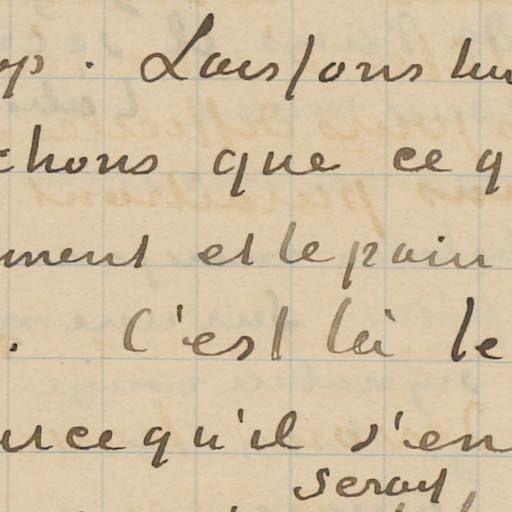 op. Laissons lui
chons que ce q
ment et le pain
. C'est là le
arce qu'il s'en
serait